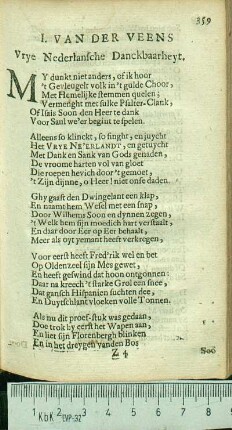 359
I. VAN DER VEENS
Vrye Nederlansche Danckbaarheyt.
MY dunckt niet anders, of ik hoor
't Gevleugelt volk in 't gulde Choor,
Met Hemelijke stemmen quelen;
Vermenght met sulke Psalter-Clank,
Of Isais Soon den Heer te dank
Voor Saul we'er begint te spelen.
Alleens so klinckt, so singht, en juycht
Het VRYE NE'ERLANDT, en getuycht
Met Dank en Sank van Gods genaden,
De vroome harten vol van gloet
Die roepen hevich door 't gemoet,
't Zijn dijnne, o Heer! niet onse daden.
Ghy gaeft den Dwingelant een klap,
En naamt hem Wesel met een snap
Door Wilhems Soon en dynnen zegen,
't Welk hem sijn moedich hart verstaalt,
En daar door Eer op Eer behaalt,
Meer als oyt yemant heeft verkregen,
Voor eerst heeft Fred'rik wel en bet
Op Oldenzeel sijn Mes gewet,
En heeft geswind dat hoon ontgonnen:
Daar na kreech 't starke Grol een snee,
Dat gansch Hispanien suchten dee,
En Duytschlant vloeken volle Tonnen.
Als nu dit proef-stuk was gedaan,
Doe trok hy eerst het Wapen aan,
En liet sijn Florenbergh blinken
En in het dreygen van den Bos
Z 4
Soo
1 2 3 4 5 6 7 8 9
KbK